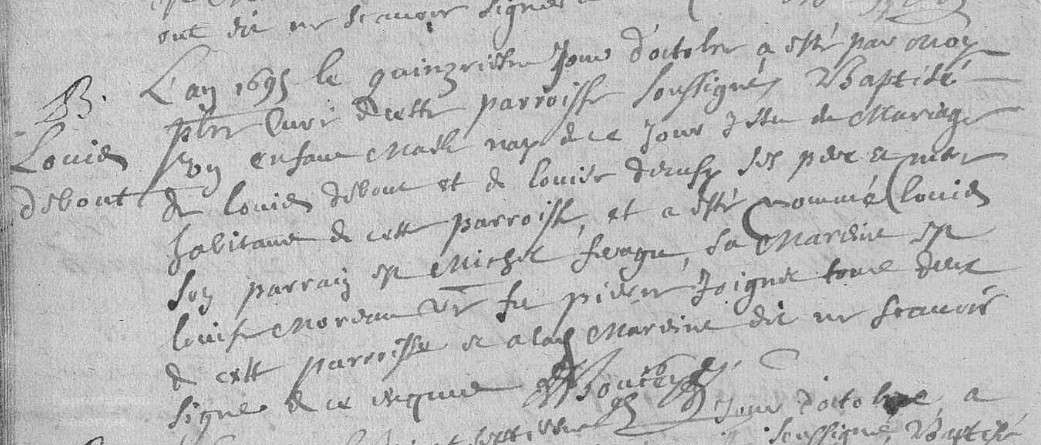 ont dit ne scavoir signer
B.
Louis
debout
L'an 1695 le quinzviesme Jour d'octobre a esté par moy
pbre Curé de cette parroisse soussigné, Baptisé
Un enfant Masle nay de ce Jour Issu du Mariage
de Louis debout et de Louise ses pere et mere
habitans de cette parroisse, et a esté nommé Louis
Son parrain est Michel la Mareine est
Louise Moreau fe pierre Joignet tous deux
de cette parroisse et a lad Mareine dit ne scavoir
signer de ce enquise
Jour d'octobre a
soussigné, Baptisé